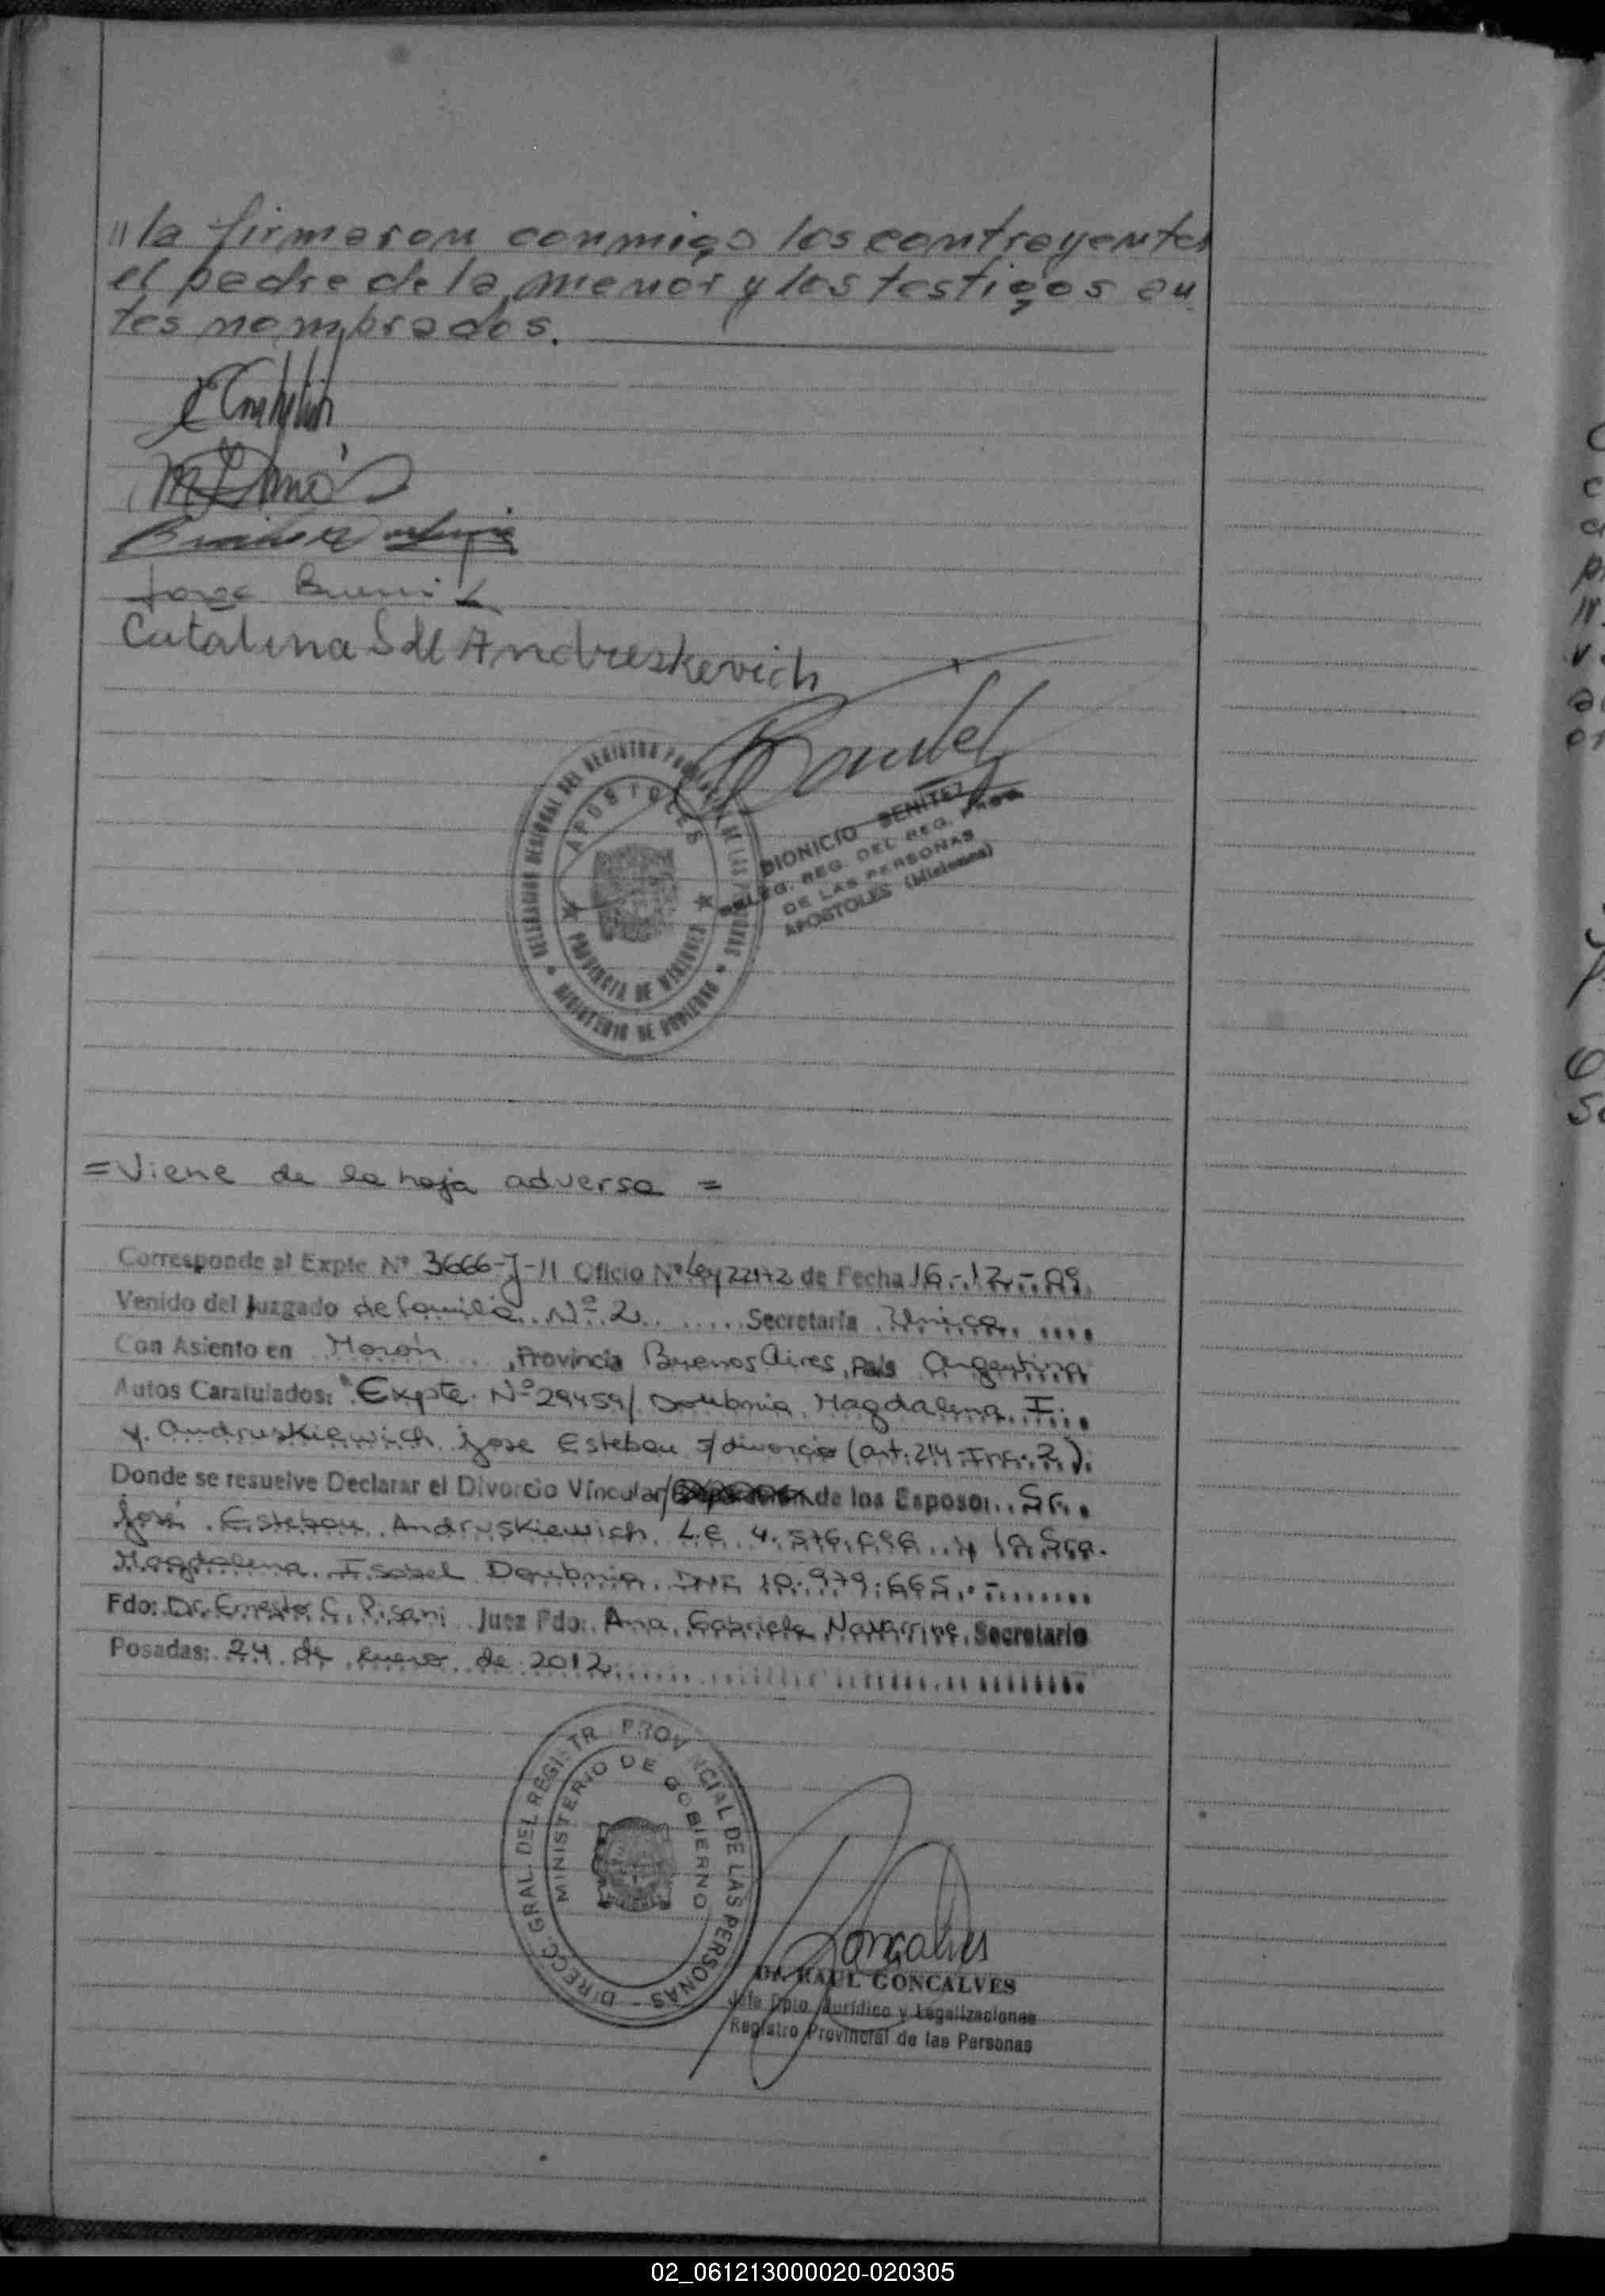 "la firmaron conmigo los contrayentes
el padre de la menor y los testigos an
tes nombrados.
Catalina S de Andreskevich
DELEGACION REGIONAL DEL REGISTRO PROVINCIAL DE LAS PERSONAS
APOSTOLES
PROVINCIA DE MISIONES
MINISTERIO DE GOBIERNO
DIONICIO BENÍTEZ
DELEG. REG. DEL REG. PROV.
DE LAS PERSONAS
APOSTOLES (Misiones)
=Viene de la hoja adversa =
Corresponde al Expte Nº 3666-J-11 Oficio Nº Ley 22172 de Fecha 16-12-09.
Venido del Juzgado de familia Nº 2 Secretaría Unica
Con Asiento en Morón, Provincia Buenos Aires, País Argentina
Autos Caratulados: "Expte. Nº 29459/ Doubnia Magdalena I.
y Andruskiewich Jose Esteban s/divorcio (art. 214 Inc. 2).
Donde se resuelve Declarar el Divorcio Vincular/ de los Esposo: Sr.
José Esteban Andruskiewich L.E. 4.576.696 y la Sra.
Magdalena Isabel Doubnia, DNI 10.979.665.-
Fdo: Dr. Ernesto C. Pisani Juez Fdo: Ana Gabriela Navarrine, Secretario
Posadas: 24 de enero de 2012
DIRECC. GRAL. DEL REGISTR PROVINCIAL DE LAS PERSONAS -
MINISTERIO DE GOBIERNO
Goncalves
Dr. RAUL GONCALVES
Jefe Dpto. Jurídico y Legalizaciones
Registro Provincial de las Personas
02_061213000020-020305